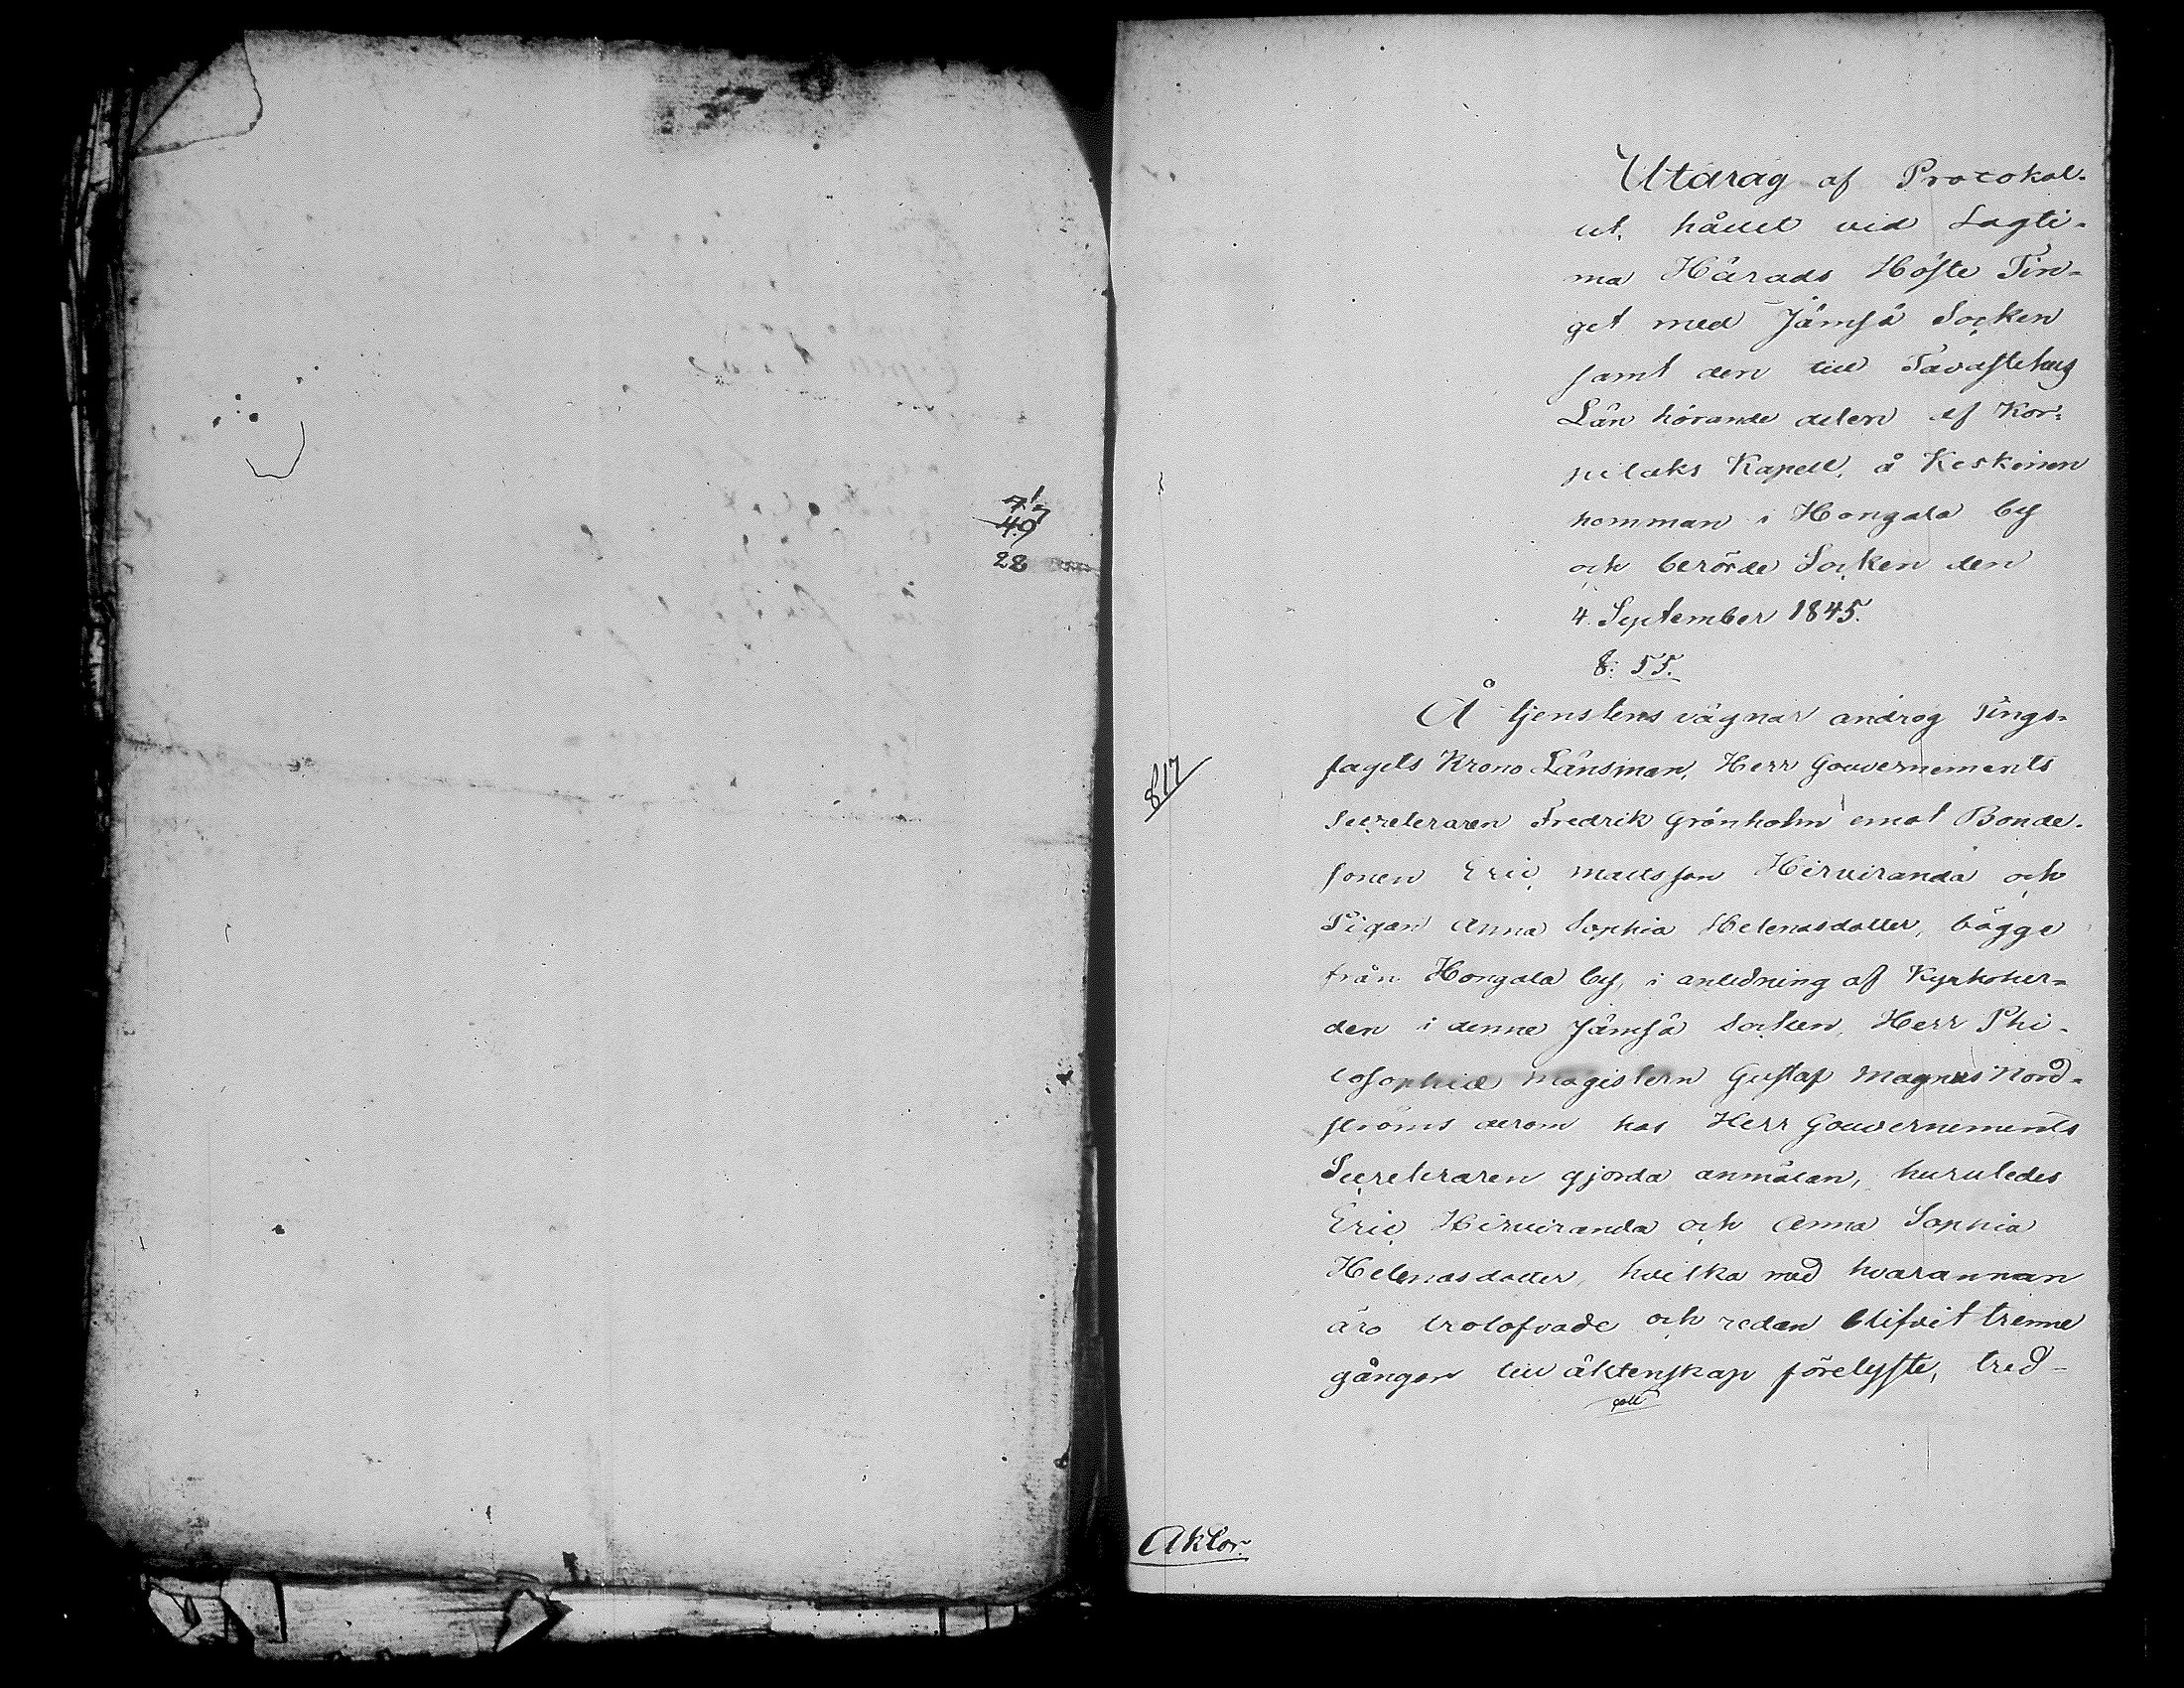 7 1/7
49
28
Utdrag af Protokol-
let, hållet vid Lagti-
ma Härads Höste Tin-
get med Jämsä Socken
samt den till Tavastehus
Län hörande delen af Kor-
pilaks Kapell, å Keskinen
hemman i Hongala by
och berörde Socken den
4 September 1845.
§: 55.
Å tjenstens vägnar androg Tings-
lagets Krono Länsman, Herr Gouvernements
Secreteraren Fredrik Grönholm emot Bonde-
sonen Eric Mattsson Hirviranda och
Pigan Anna Sophia Helenasdotter, bägge
från Hongala by, i anledning af Kyrkoher-
den i denne Jämsä Socken, Herr Phi-
losophiæ Magistern Gustaf Magnus Nord-
ströms derom hos Herr Gouvernements
Secreteraren gjorda anmälan, huruledes
Eric Hirviranda och Anna Sophia
Helenasdotter, hvilka med hvarannan
äro trolofvade och redan blifvit trenne
gånger till äktenskap förelyste, tred-
coll
Aktor.